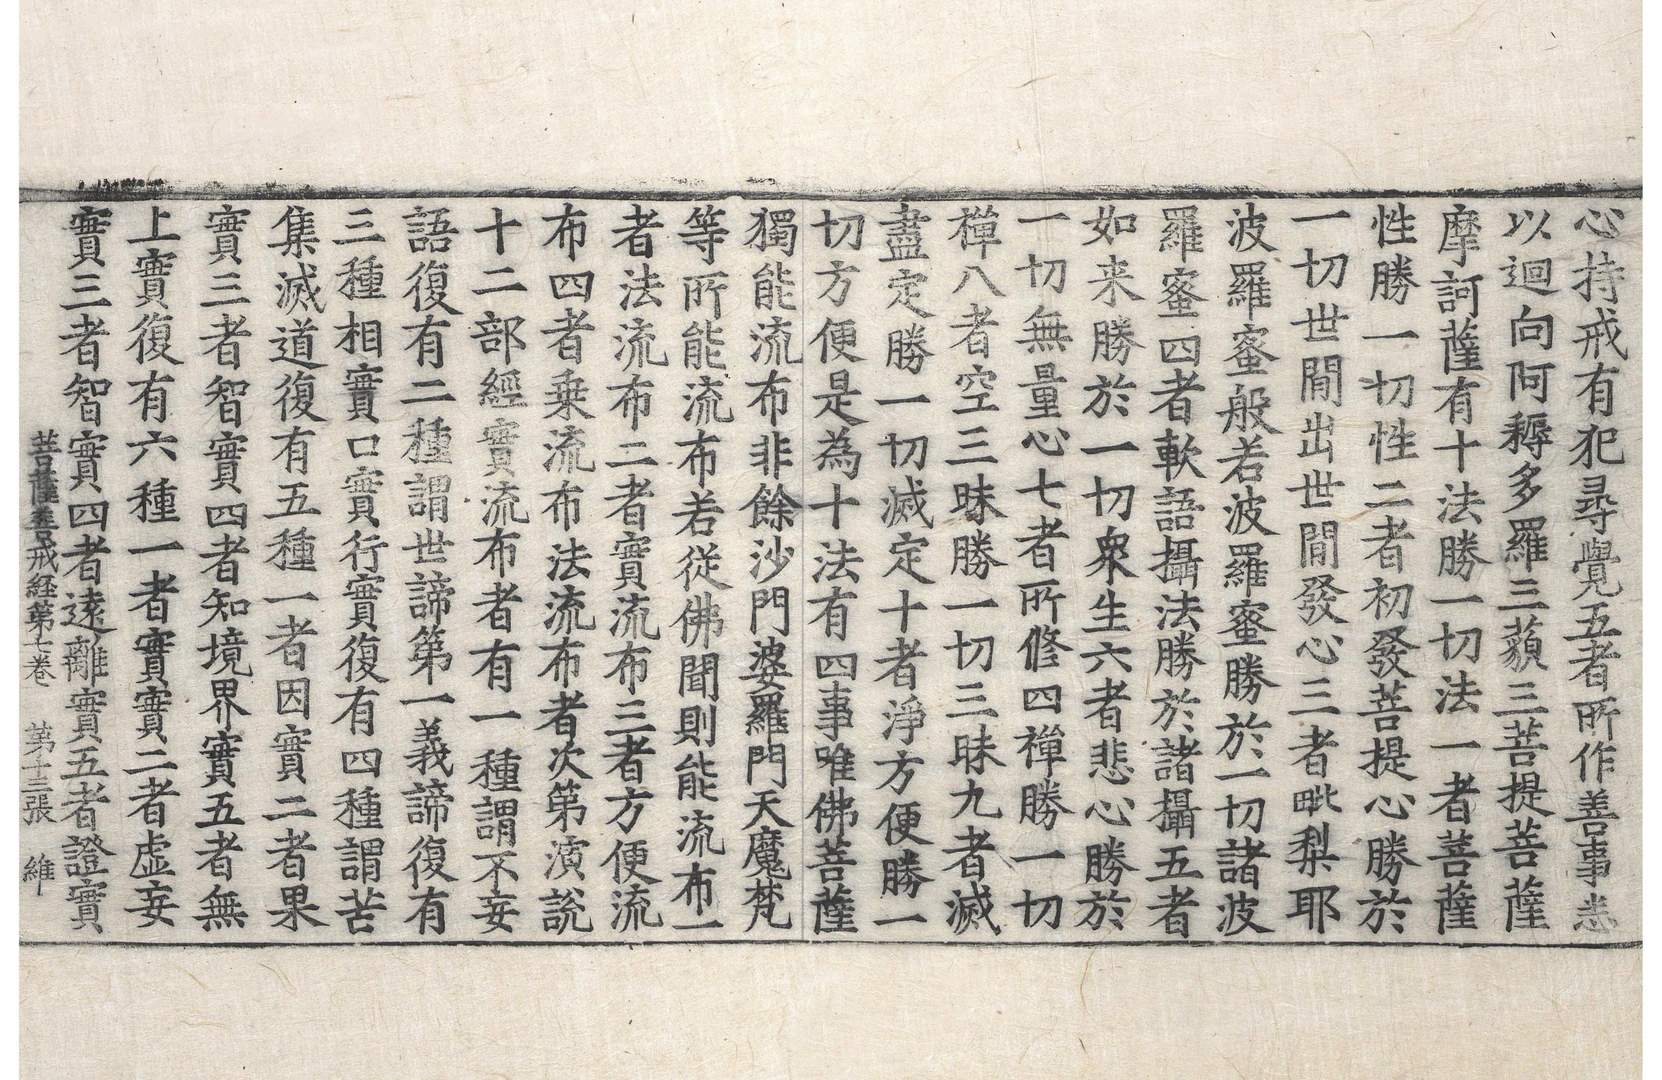 心持戒有犯尋覺五者所作善事悉
以迴向阿耨多羅三藐三菩提菩薩
摩訶薩有十法勝一切法一者菩薩
性勝一切性二者初發菩提心勝於
一切世間出世間發心三者毗梨耶
波羅蜜般若波羅蜜勝於一切諸波
羅蜜四者軟語攝法勝於諸攝五者
如来勝於一切衆生六者悲心勝於
一切無量心七者所修四禪勝一切
禪八者空三昧勝一切三昧九者滅
盡定勝一切滅定十者淨方便勝一
切方便是為十法有四事唯佛菩薩
獨能流布非餘沙門婆羅門天魔梵
等所能流布若從佛聞則能流布一
者法流布二者實流布三者方便流
布四者乗流布法流布者次第演說
十二部經實流布者有一種謂不妄
語復有二種謂世諦第一義諦復有
三種相實口實行實復有四種謂苦
集滅道復有五種一者因實二者果
實三者智實四者知境界實五者無
上實復有六種一者實實二者虛妄
實三者智實四者遠離實五者證實
菩薩善戒経第七卷 第十三張 維